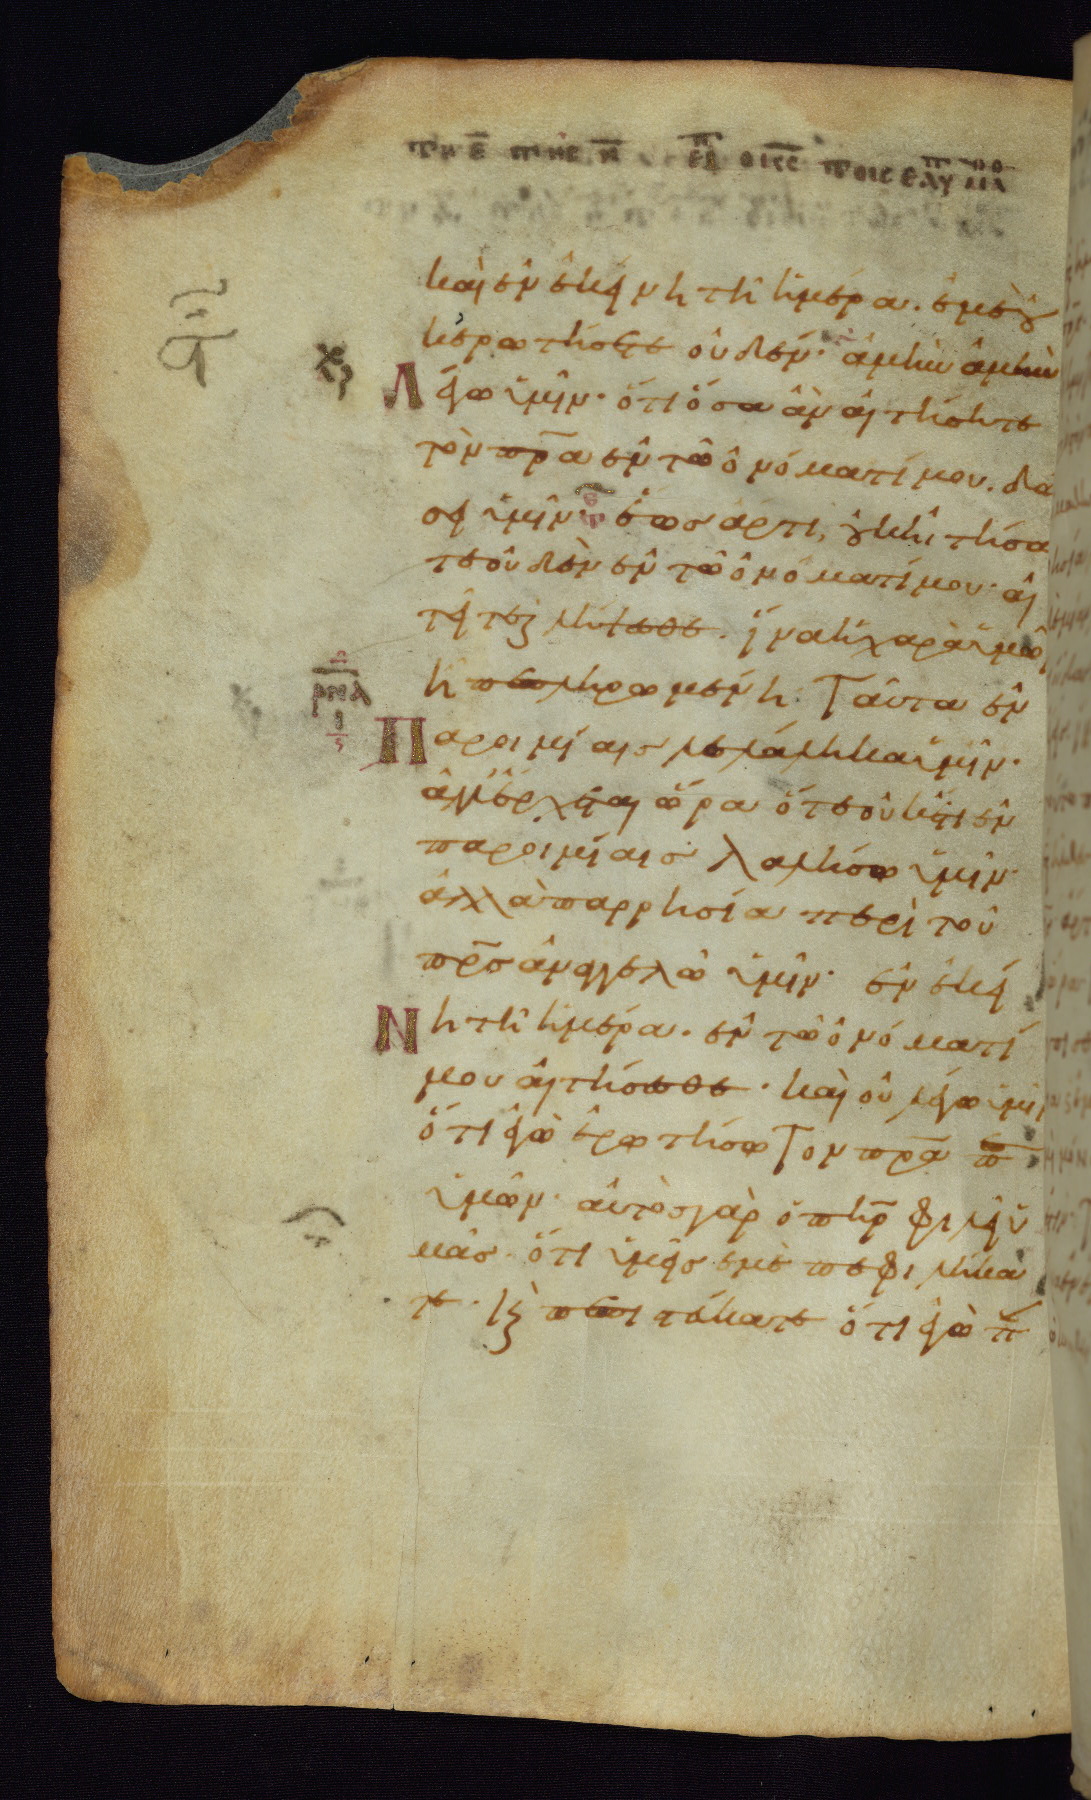 καὶ ἐν ἐκείνη τῆ ἡμέρα. ἐμὲ οὐ
κ ἐρωτήσετε οὐδέν· ἀμὴν ἀμὴν
Λέγω ὑμῖν· ὅτι ὅσα ἂν αἰτήσητε
τὸν πρ̅α ἐν τῶ ὀνόματί μου. δώ
σει ὑμῖν· ἕως ἄρτι, οὐκ ἠτήσα
τε οὐδὲν ἐν τῶ ὀνόματί μου· αἰ
τεῖτε ϗ λήψεσθε. ἵνα ἡ χαρὰ ὑμῶν
ἦ πεπληρωμένη: Ταῦτα ἐν
Παροιμίαισ λελάληκα ὑμῖν·
ἀλλ' ἔρχεται ὥρα ὅτε οὐκέτι ἐν
παροιμίαισ λαλήσω ὑμῖν·
ἀλλὰ παρρησία περὶ τοῦ
πρ̅σ ἀναγγελῶ ὑμῖν· ἐν ἐκεί
Νη τῆ ἡμέρα. ἐν τῶ ὀνόματί
μου αἰτήσεσθε· καὶ οὐ λέγω ὑμῖν
ὅτι ἐγὼ ἐρωτήσω Τον πρ̅α π
ὑμῶν· αὐτὸσ γὰρ ὁ πη̅ρ φιλεῖ ὑ
μᾶσ· ὅτι ὑμεῖσ ἐμὲ πεφιλήκα
τε· ϗ πεπιστεύκατε ὅτι ἐγὼ π